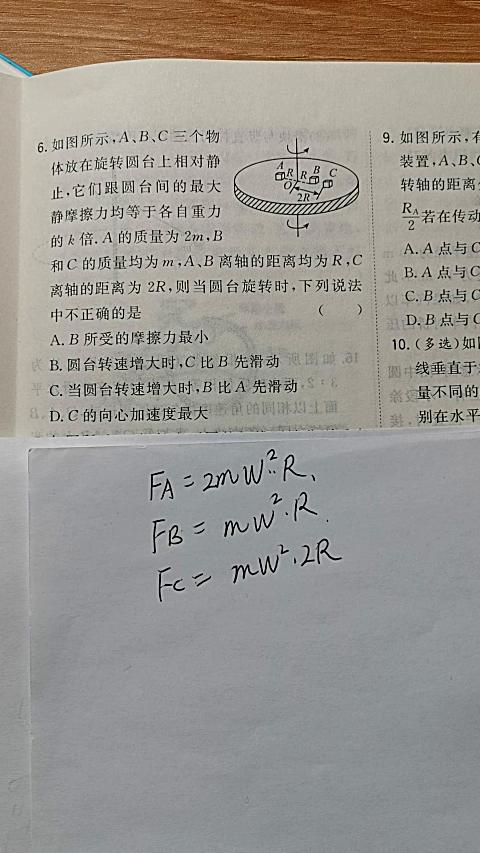 6. 如图所示,A、B、C 三个物
体放在旋转圆台上相对静
止,它们跟圆台间的最大
静摩擦力均等于各自重力
的 k 倍. A 的质量为 2m, B
和 C 的质量均为 m, A、B 离轴的距离均为 R, C
离轴的距离为 2R,则当圆台旋转时,下列说法
中不正确的是 ( )
A. B 所受的摩擦力最小
B. 圆台转速增大时,C 比 B 先滑动
C. 当圆台转速增大时,B 比 A 先滑动
D. C 的向心加速度最大
A R R B C
O
2R
9. 如图所示,有
装置,A、B、
转轴的距离
R_A/2 若在传动
A. A 点与 C
B. A 点与 C
C. B 点与 C
D. B 点与 C
10. (多选)如
线垂直于
量不同的
别在水平
F_A = 2mW²·R、
F_B = mW²·R.
F_C = mW²·2R